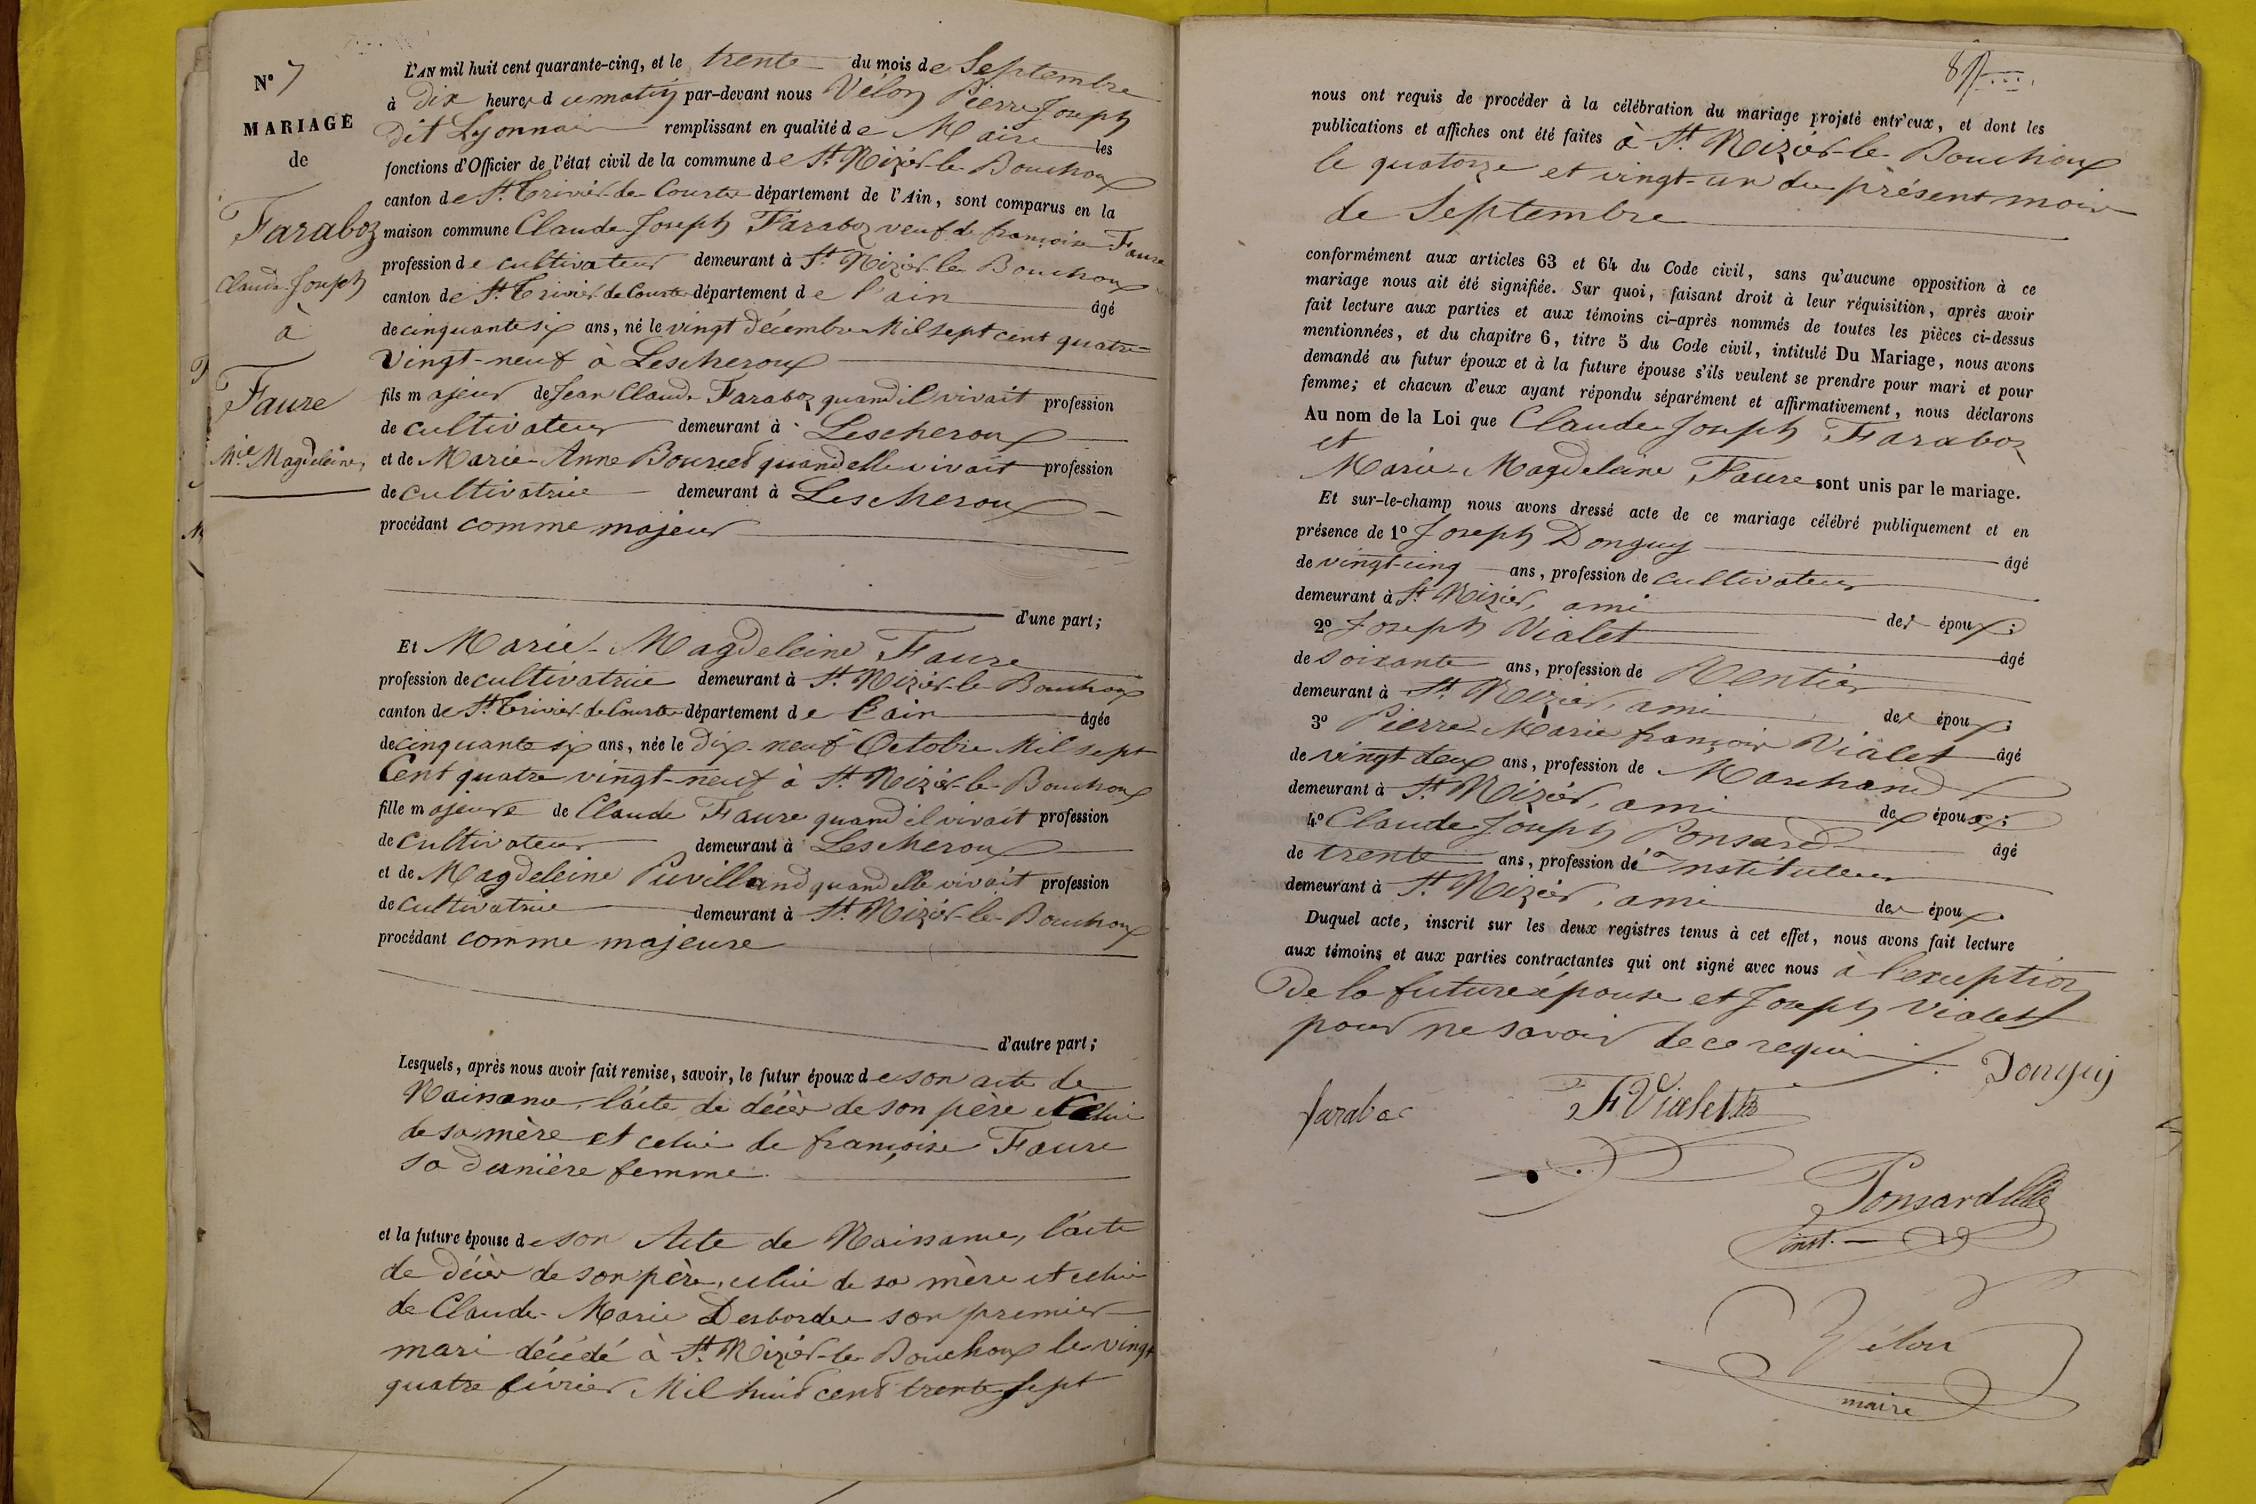 N° 7
MARIAGE
de
Faraboz
Claude Joseph
à
Faure
Mie Magdeleine,
L'AN mil huit cent quarante-cinq, et le trente du mois de Septembre
à Dix heures du matin par-devant nous Vélon Pierre Joseph
dit Lyonnais remplissant en qualité de Maire les
fonctions d'Officier de l'état civil de la commune de St. Nizier-le-Bouchoux
canton de St. Trivier-de-Courtes département de l'Ain, sont comparus en la
maison commune Claude Joseph Faraboz veuf de françoise Faure
profession de cultivateur demeurant à St. Nizier-le-Bouchoux
canton de St. Trivier de Courtes département de l'ain âgé
de cinquante six ans, né le vingt décembre Mil sept cent quatre-
vingt-neuf à Lescheroux
fils majeur de Jean Claude Faraboz quand il vivait profession
de cultivateur demeurant à Lescheroux
et de Marie-Anne Bourcet quand elle vivait profession
de cultivatrice demeurant à Lescheroux
procédant comme majeur
d'une part;
Et Marie-Magdeleine Faure
profession de cultivatrice demeurant à St. Nizier-le-Bouchoux
canton de St. Trivier-de-Courtes département de l'ain âgée
de cinquante six ans, née le dix-neuf Octobre Mil sept
Cent quatre vingt-neuf à St. Nizier-le-Bouchoux
fille majeure de Claude Faure quand il vivait profession
de cultivateur demeurant à Lescheroux
et de Magdeleine Puvilland quand elle vivait profession
de cultivatrice demeurant à St. Nizier-le-Bouchoux
procédant comme majeure
d'autre part;
Lesquels, après nous avoir fait remise, savoir, le futur époux de son acte de
Naissance, l'acte de décès de son père et celui
de sa mère et celui de françoise Faure
sa dernière femme
et la future épouse de son Acte de Naissance, l'acte
de décès de son père, celui de sa mère et celui
de Claude-Marie Desbordes son premier
mari décédé à St. Nizier-le-Bouchoux le vingt
quatre février Mil huit cent trente sept
nous ont requis de procéder à la célébration du mariage projeté entr'eux, et dont les
publications et affiches ont été faites à St. Nizier-le-Bouchoux
le quatorze et vingt-un du présent mois
de Septembre
conformément aux articles 63 et 64 du Code civil, sans qu'aucune opposition à ce
mariage nous ait été signifiée. Sur quoi, faisant droit à leur réquisition, après avoir
fait lecture aux parties et aux témoins ci-après nommés de toutes les pièces ci-dessus
mentionnées, et du chapitre 6, titre 5 du Code civil, intitulé Du Mariage, nous avons
demandé au futur époux et à la future épouse s'ils veulent se prendre pour mari et pour
femme; et chacun d'eux ayant répondu séparément et affirmativement, nous déclarons
Au nom de la Loi que Claude Joseph Faraboz
et
Marie-Magdeleine Faure sont unis par le mariage.
Et sur-le-champ nous avons dressé acte de ce mariage célébré publiquement et en
présence de 1° Joseph Donguy âgé
de vingt-cinq ans, profession de cultivateur
demeurant à St. Nizier, ami des époux;
2° Joseph Vialet âgé
de soixante ans, profession de Rentier
demeurant à St. Nizier, ami des époux;
3° Pierre-Marie françois Vialet âgé
de vingt deux ans, profession de Marchand
demeurant à St. Nizier, ami des époux;
4° Claude Joseph Ponsard âgé
de trente ans, profession de Instituteur
demeurant à St. Nizier, ami des époux.
Duquel acte, inscrit sur les deux registres tenus à cet effet, nous avons fait lecture
aux témoins et aux parties contractantes qui ont signé avec nous à l'exception
De la future épouse et Joseph Vialet
pour ne savoir de ce requis.
Donguy
faraboz
F Vialet
Ponsard
inst.
Vélon
maire